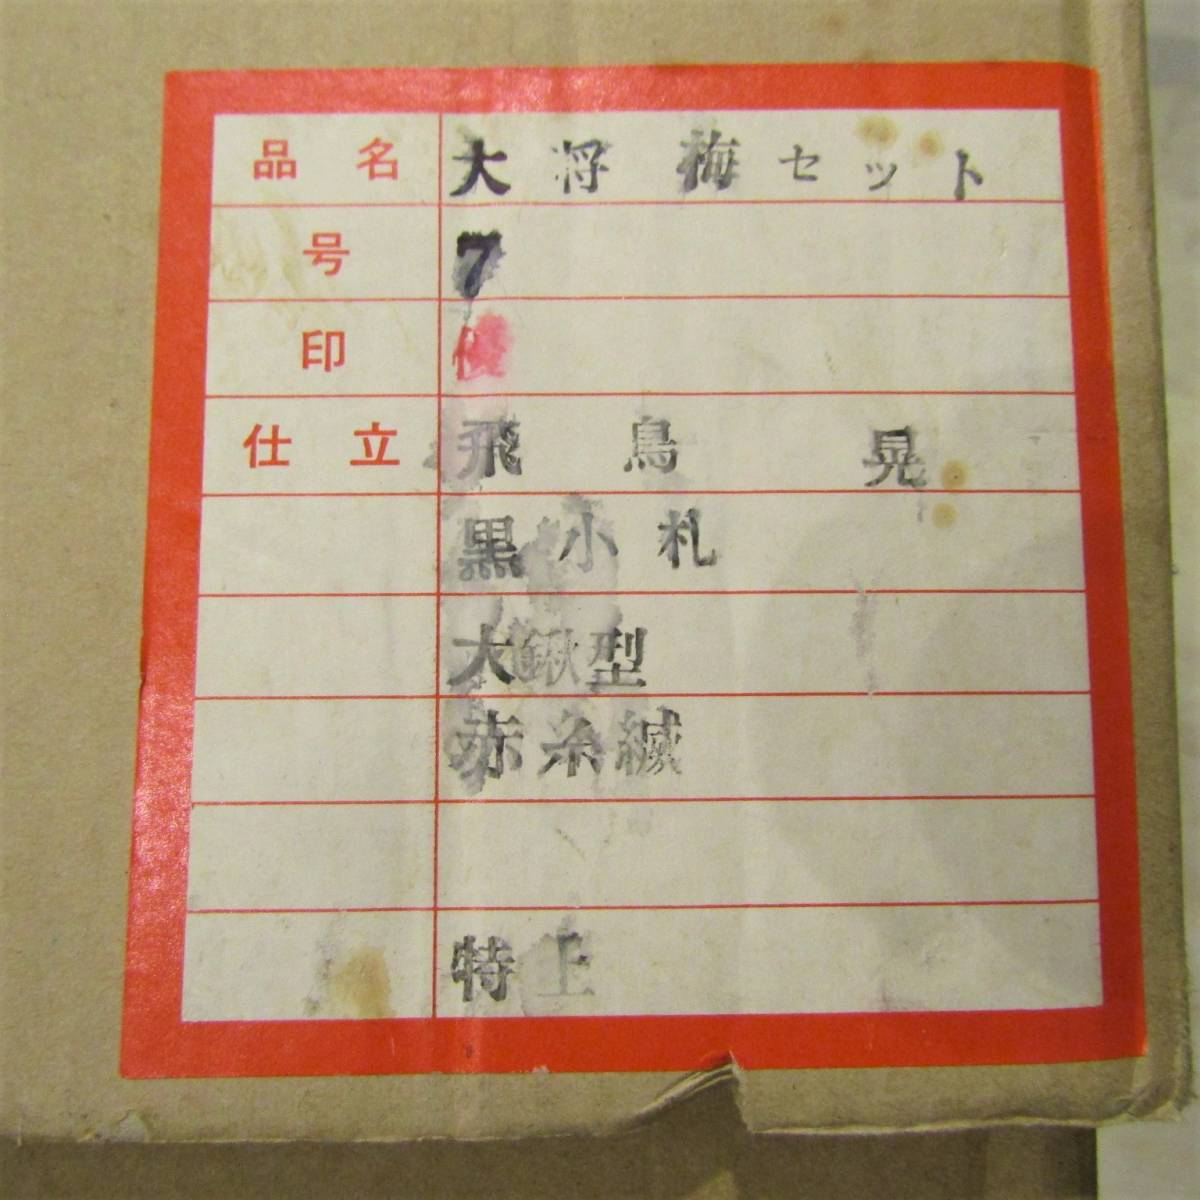 品名 大将 梅セット
号 7
印
仕立 飛鳥 晃
黒小札
大鍬型
赤糸縅
特上